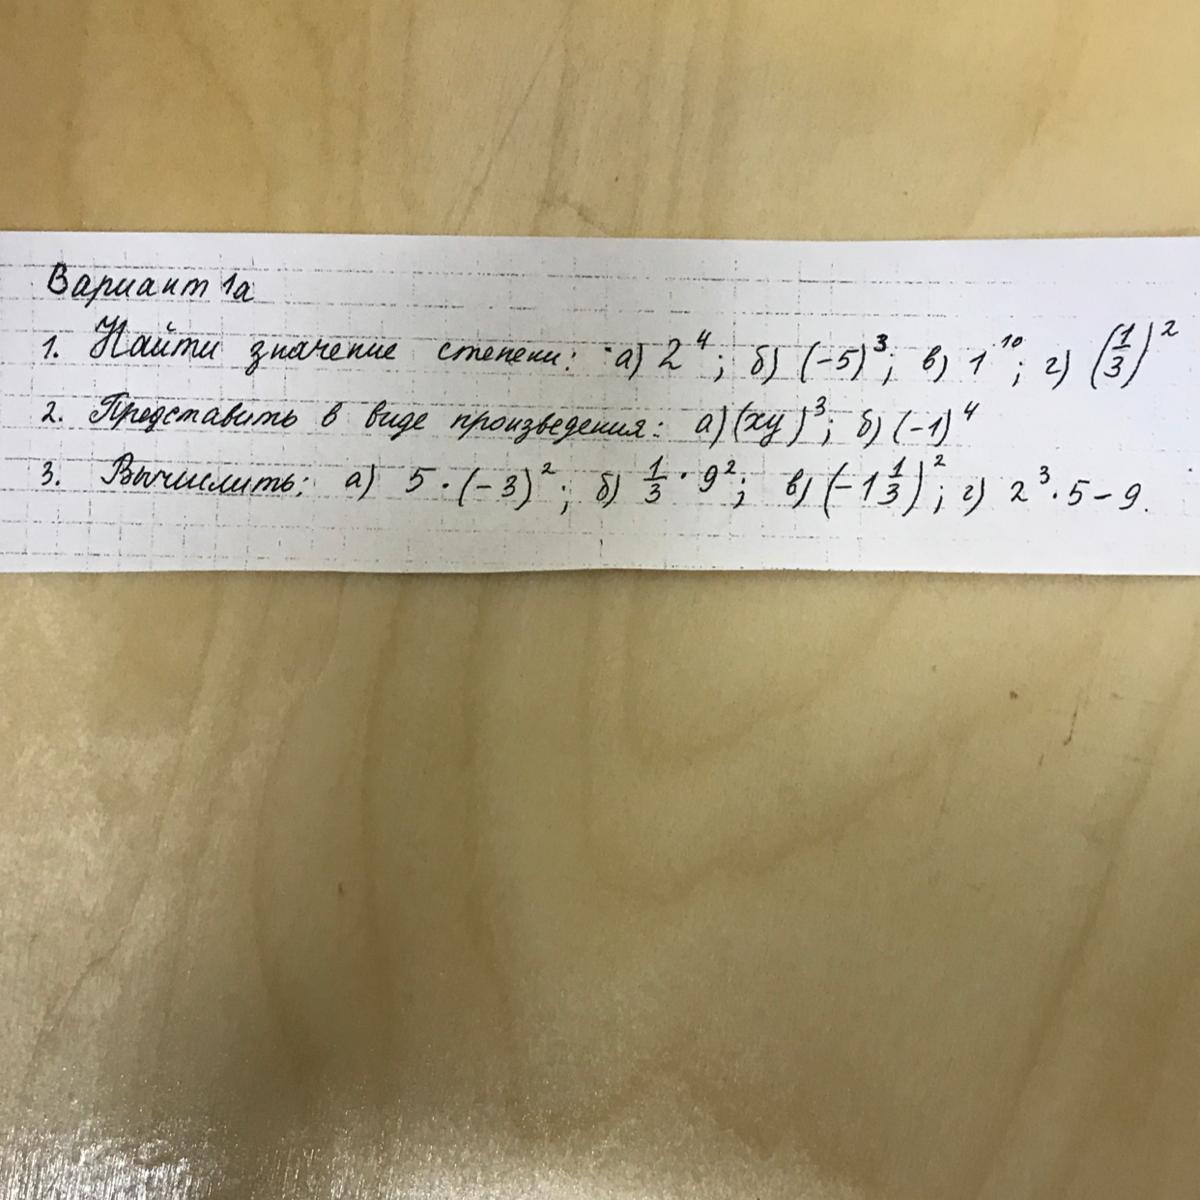 Вариант 1а
1. Найти значение степени: а) 2⁴; б) (-5)³; в) 1¹⁰; г) (1/3)²
2. Представить в виде произведения: а) (xy)³; б) (-1)⁴
3. Вычислить: а) 5·(-3)²; б) 1/3·9²; в) (-1 1/3)²; г) 2³·5-9.